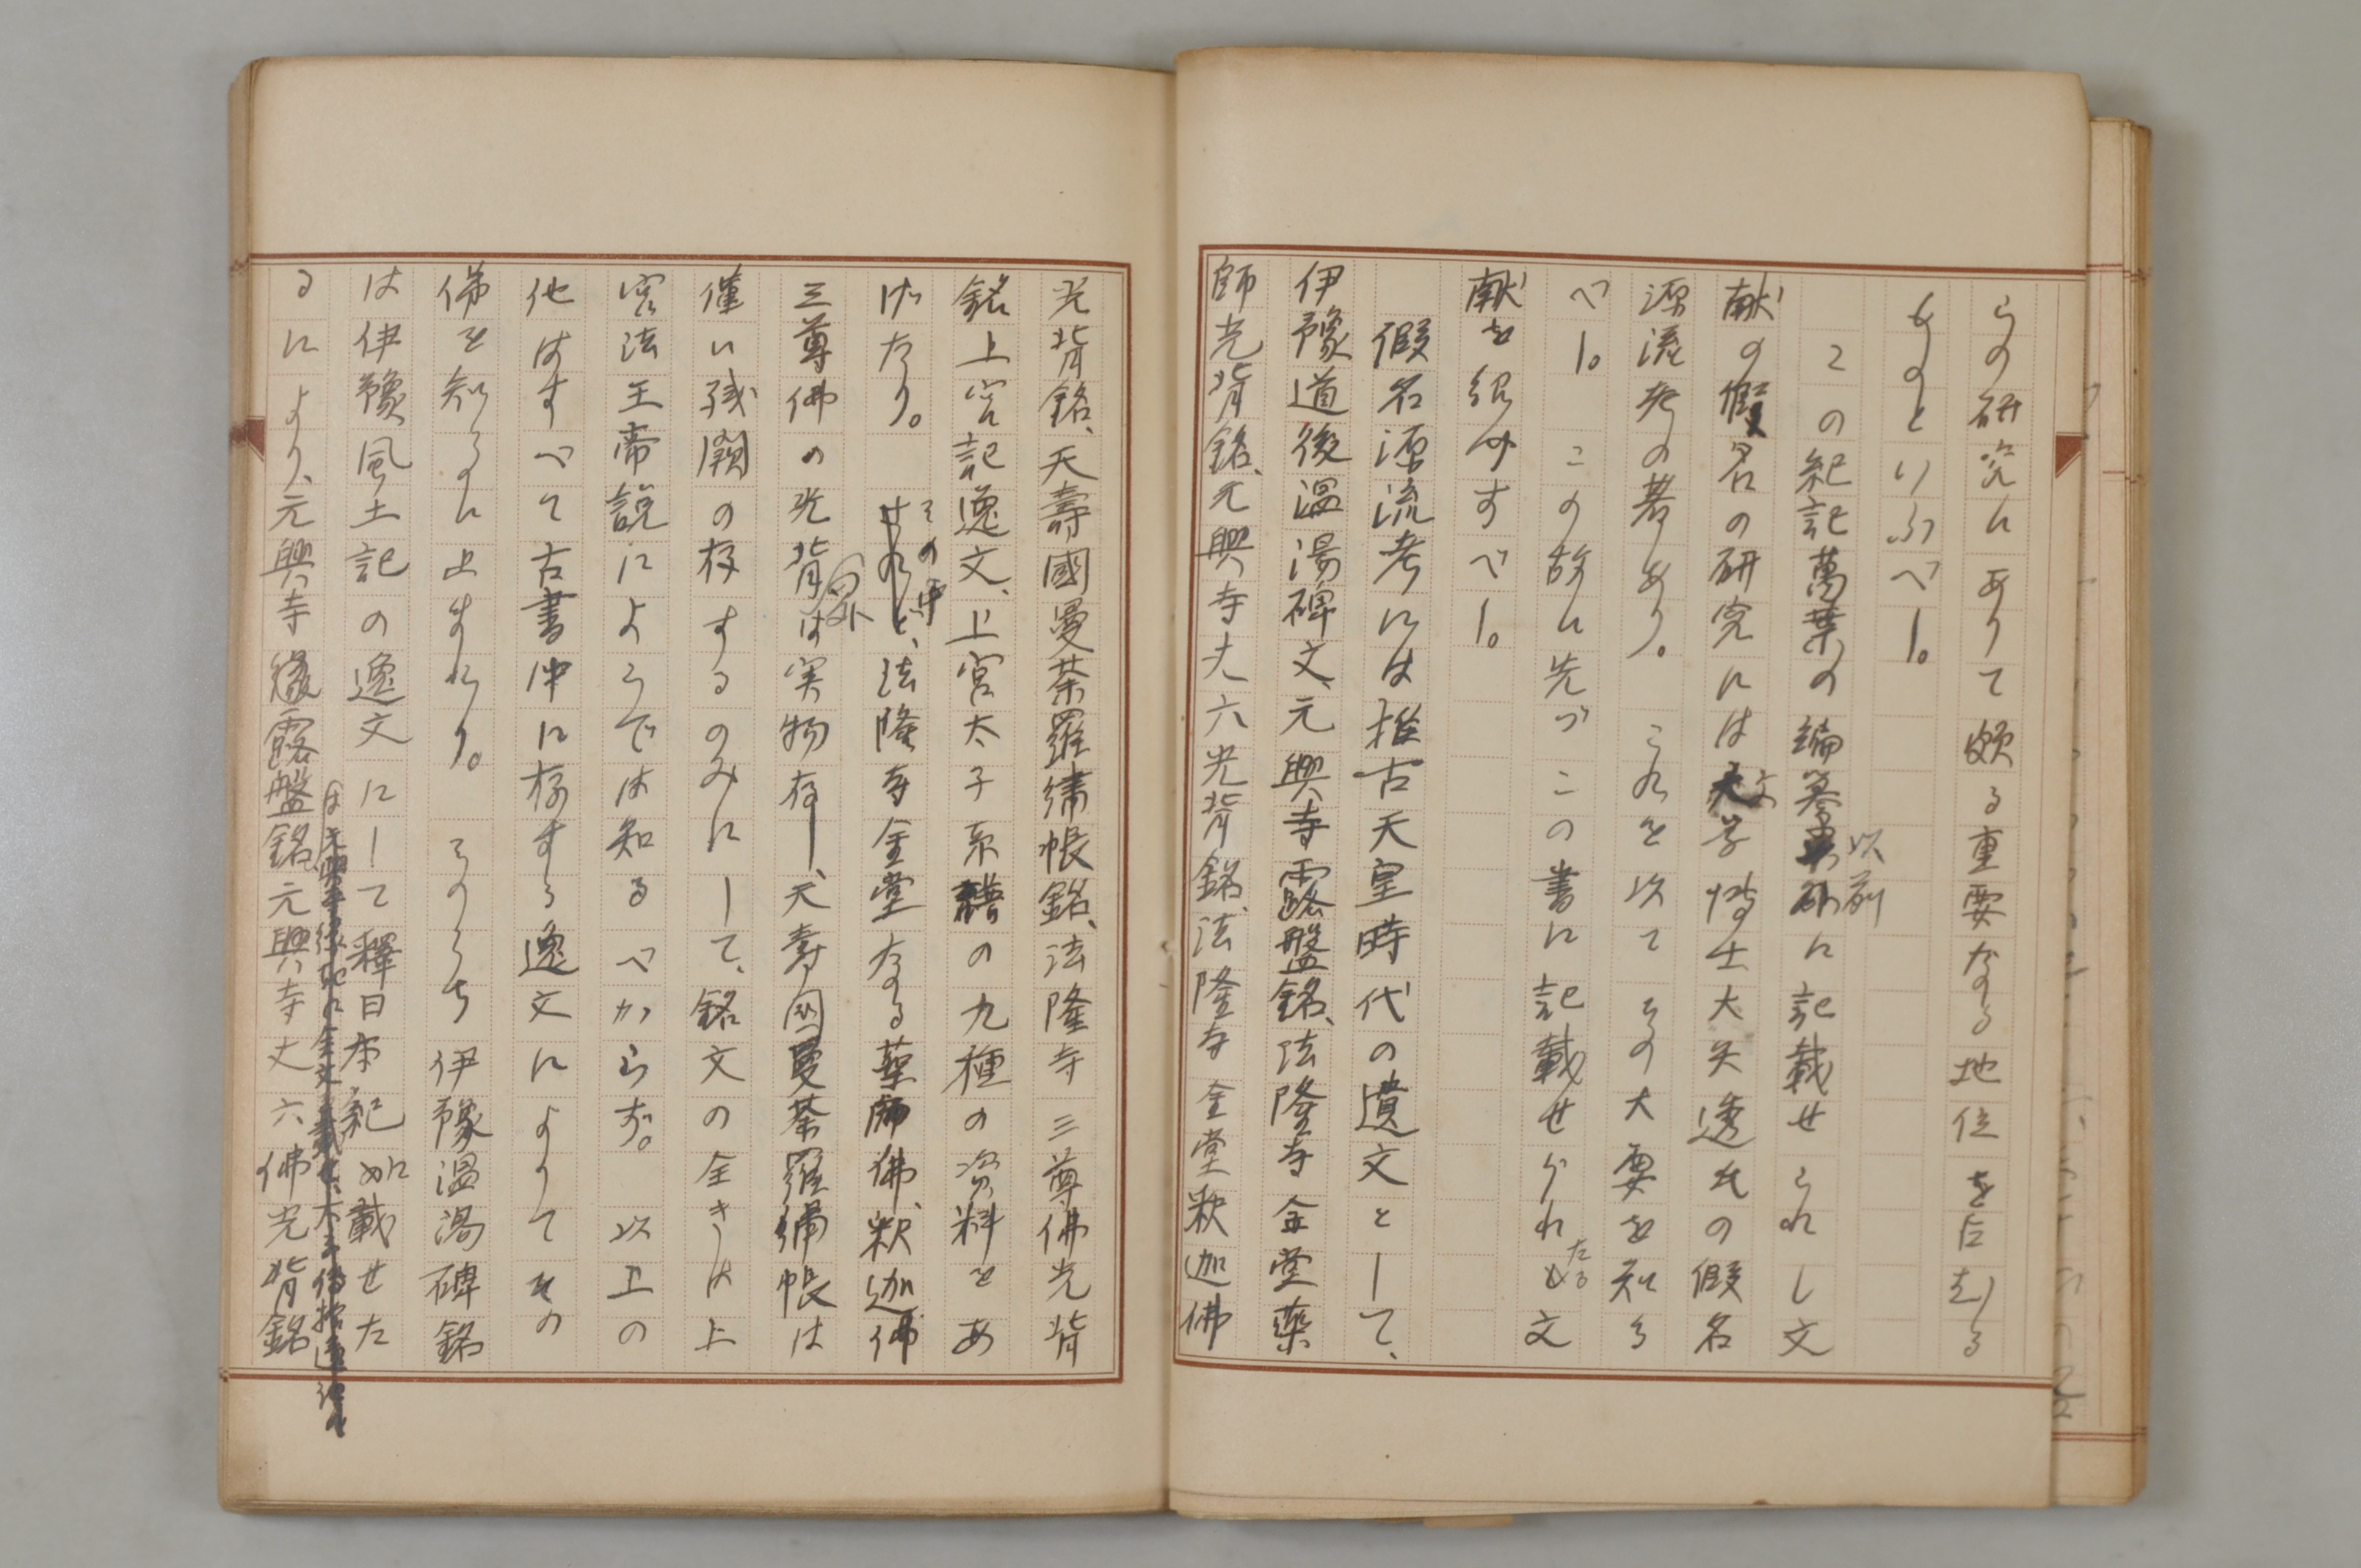 らの研究にありて頗る重要なる地位を占むる
ものといふべし。
この紀記萬葉の編纂以前に記載せられし文
献の假名の研究には文学博士大矢透氏の假名
源流考の著あり。これを以てその大要を知る
べし。この故に先づこの書に記載せられたる文
献を紹介すべし。
假名源流考には推古天皇時代の遺文として、
伊豫道後温湯碑文、元興寺露盤銘、法隆寺金堂藥
師光背銘、元興寺丈六光背銘、法隆寺金堂釈迦佛
光背銘、天壽國曼荼羅繍帳銘、法隆寺三尊佛光背
銘上宮記逸文、上宮太子系譜の九種の資料をあ
げたり。その中、法隆寺金堂なる藥師佛、釈迦佛
三尊佛の光背の外は実物存し、天寿国曼荼羅繍帳は
僅に残闕の存するのみにして、銘文の全きは上
宮法王帝説によらでは知るべからず。以上の
他はすべて古書中に存する逸文によりてその
俤を知るに止まれり。そのうち伊豫温湯碑銘
は伊豫風土記の逸文にして釋日本紀に載せた
るにより、元興寺露盤銘、元興寺丈六佛光背銘